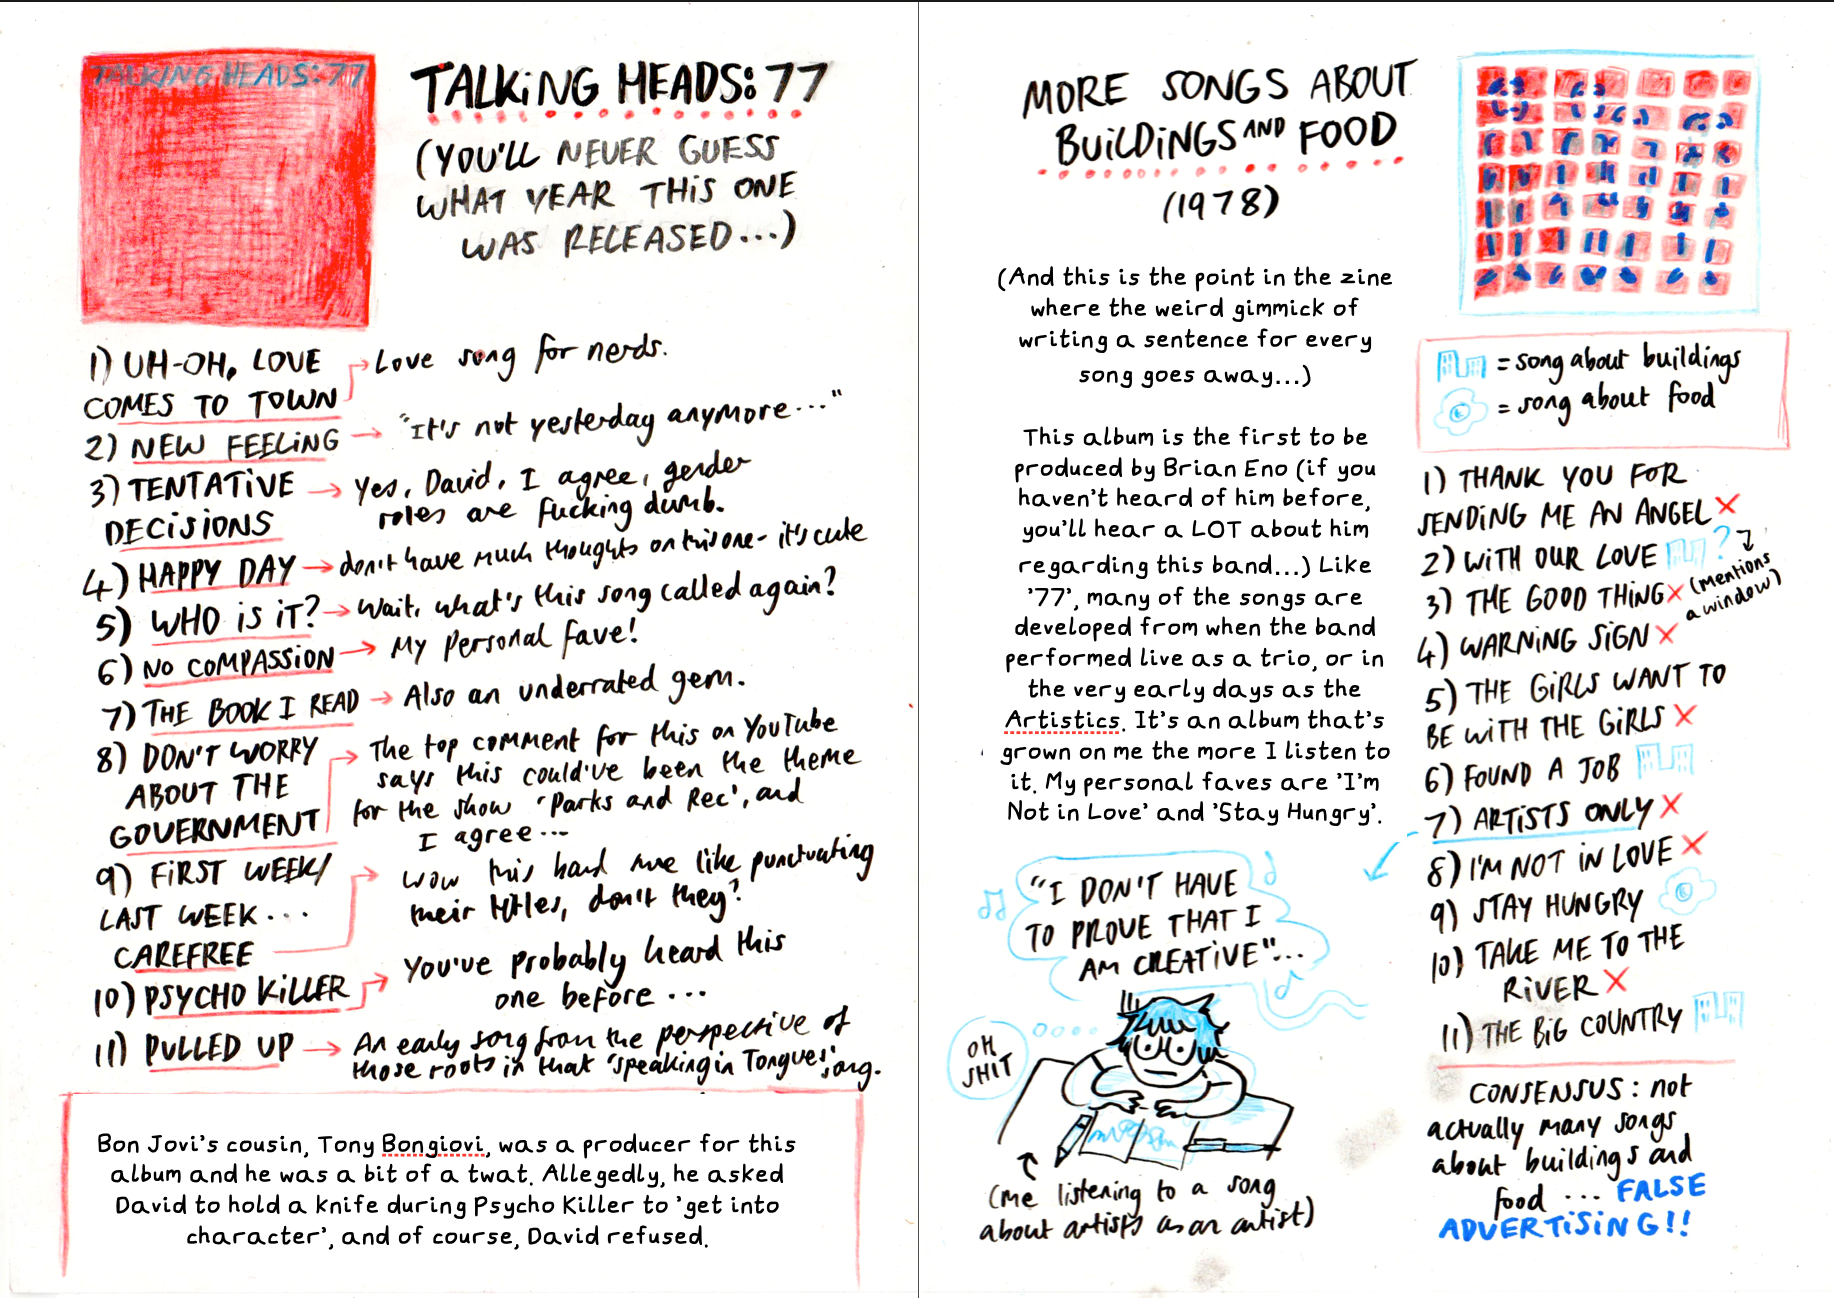 TALKING HEADS: 77
TALKING HEADS: 77
(YOU'LL NEVER GUESS
WHAT YEAR THIS ONE
WAS RELEASED...)
1) UH-OH, LOVE
COMES TO TOWN
Love song for nerds.
2) NEW FEELING
"It's not yesterday anymore..."
3) TENTATIVE
DECISIONS
Yes, David, I agree, gender
roles are fucking dumb.
4) HAPPY DAY
don't have much thoughts on this one - it's cute
5) WHO IS IT?
Wait, what's this song called again?
6) NO COMPASSION
My personal fave!
7) THE BOOK I READ
Also an underrated gem.
8) DON'T WORRY
ABOUT THE
GOVERNMENT
The top comment for this on YouTube
says this could've been the theme
for the show 'Parks and Rec', and
I agree...
9) FIRST WEEK/
LAST WEEK...
CAREFREE
Wow this band sure like punctuating
their titles, don't they?
10) PSYCHO KILLER
You've probably heard this
one before...
11) PULLED UP
An early song from the perspective of
those roots in that 'Speaking in Tongues' song.
Bon Jovi's cousin, Tony Bongiovi, was a producer for this
album and he was a bit of a twat. Allegedly, he asked
David to hold a knife during Psycho Killer to 'get into
character', and of course, David refused.
MORE SONGS ABOUT
BUILDINGS AND FOOD
(1978)
(And this is the point in the zine
where the weird gimmick of
writing a sentence for every
song goes away...)
This album is the first to be
produced by Brian Eno (if you
haven't heard of him before,
you'll hear a LOT about him
regarding this band...) Like
'77', many of the songs are
developed from when the band
performed live as a trio, or in
the very early days as the
Artistics. It's an album that's
grown on me the more I listen to
it. My personal faves are 'I'm
Not in Love' and 'Stay Hungry'.
"I DON'T HAVE
TO PROVE THAT I
AM CREATIVE"...
OH
SHIT
(me listening to a song
about artists as an artist)
= song about buildings
= song about food
1) THANK YOU FOR
SENDING ME AN ANGEL
2) WITH OUR LOVE ?
(mentions
a window)
3) THE GOOD THING
4) WARNING SIGN
5) THE GIRLS WANT TO
BE WITH THE GIRLS
6) FOUND A JOB
7) ARTISTS ONLY
8) I'M NOT IN LOVE
9) STAY HUNGRY
10) TAKE ME TO THE
RIVER
11) THE BIG COUNTRY
CONSENSUS: not
actually many songs
about buildings and
food ... FALSE
ADVERTISING!!